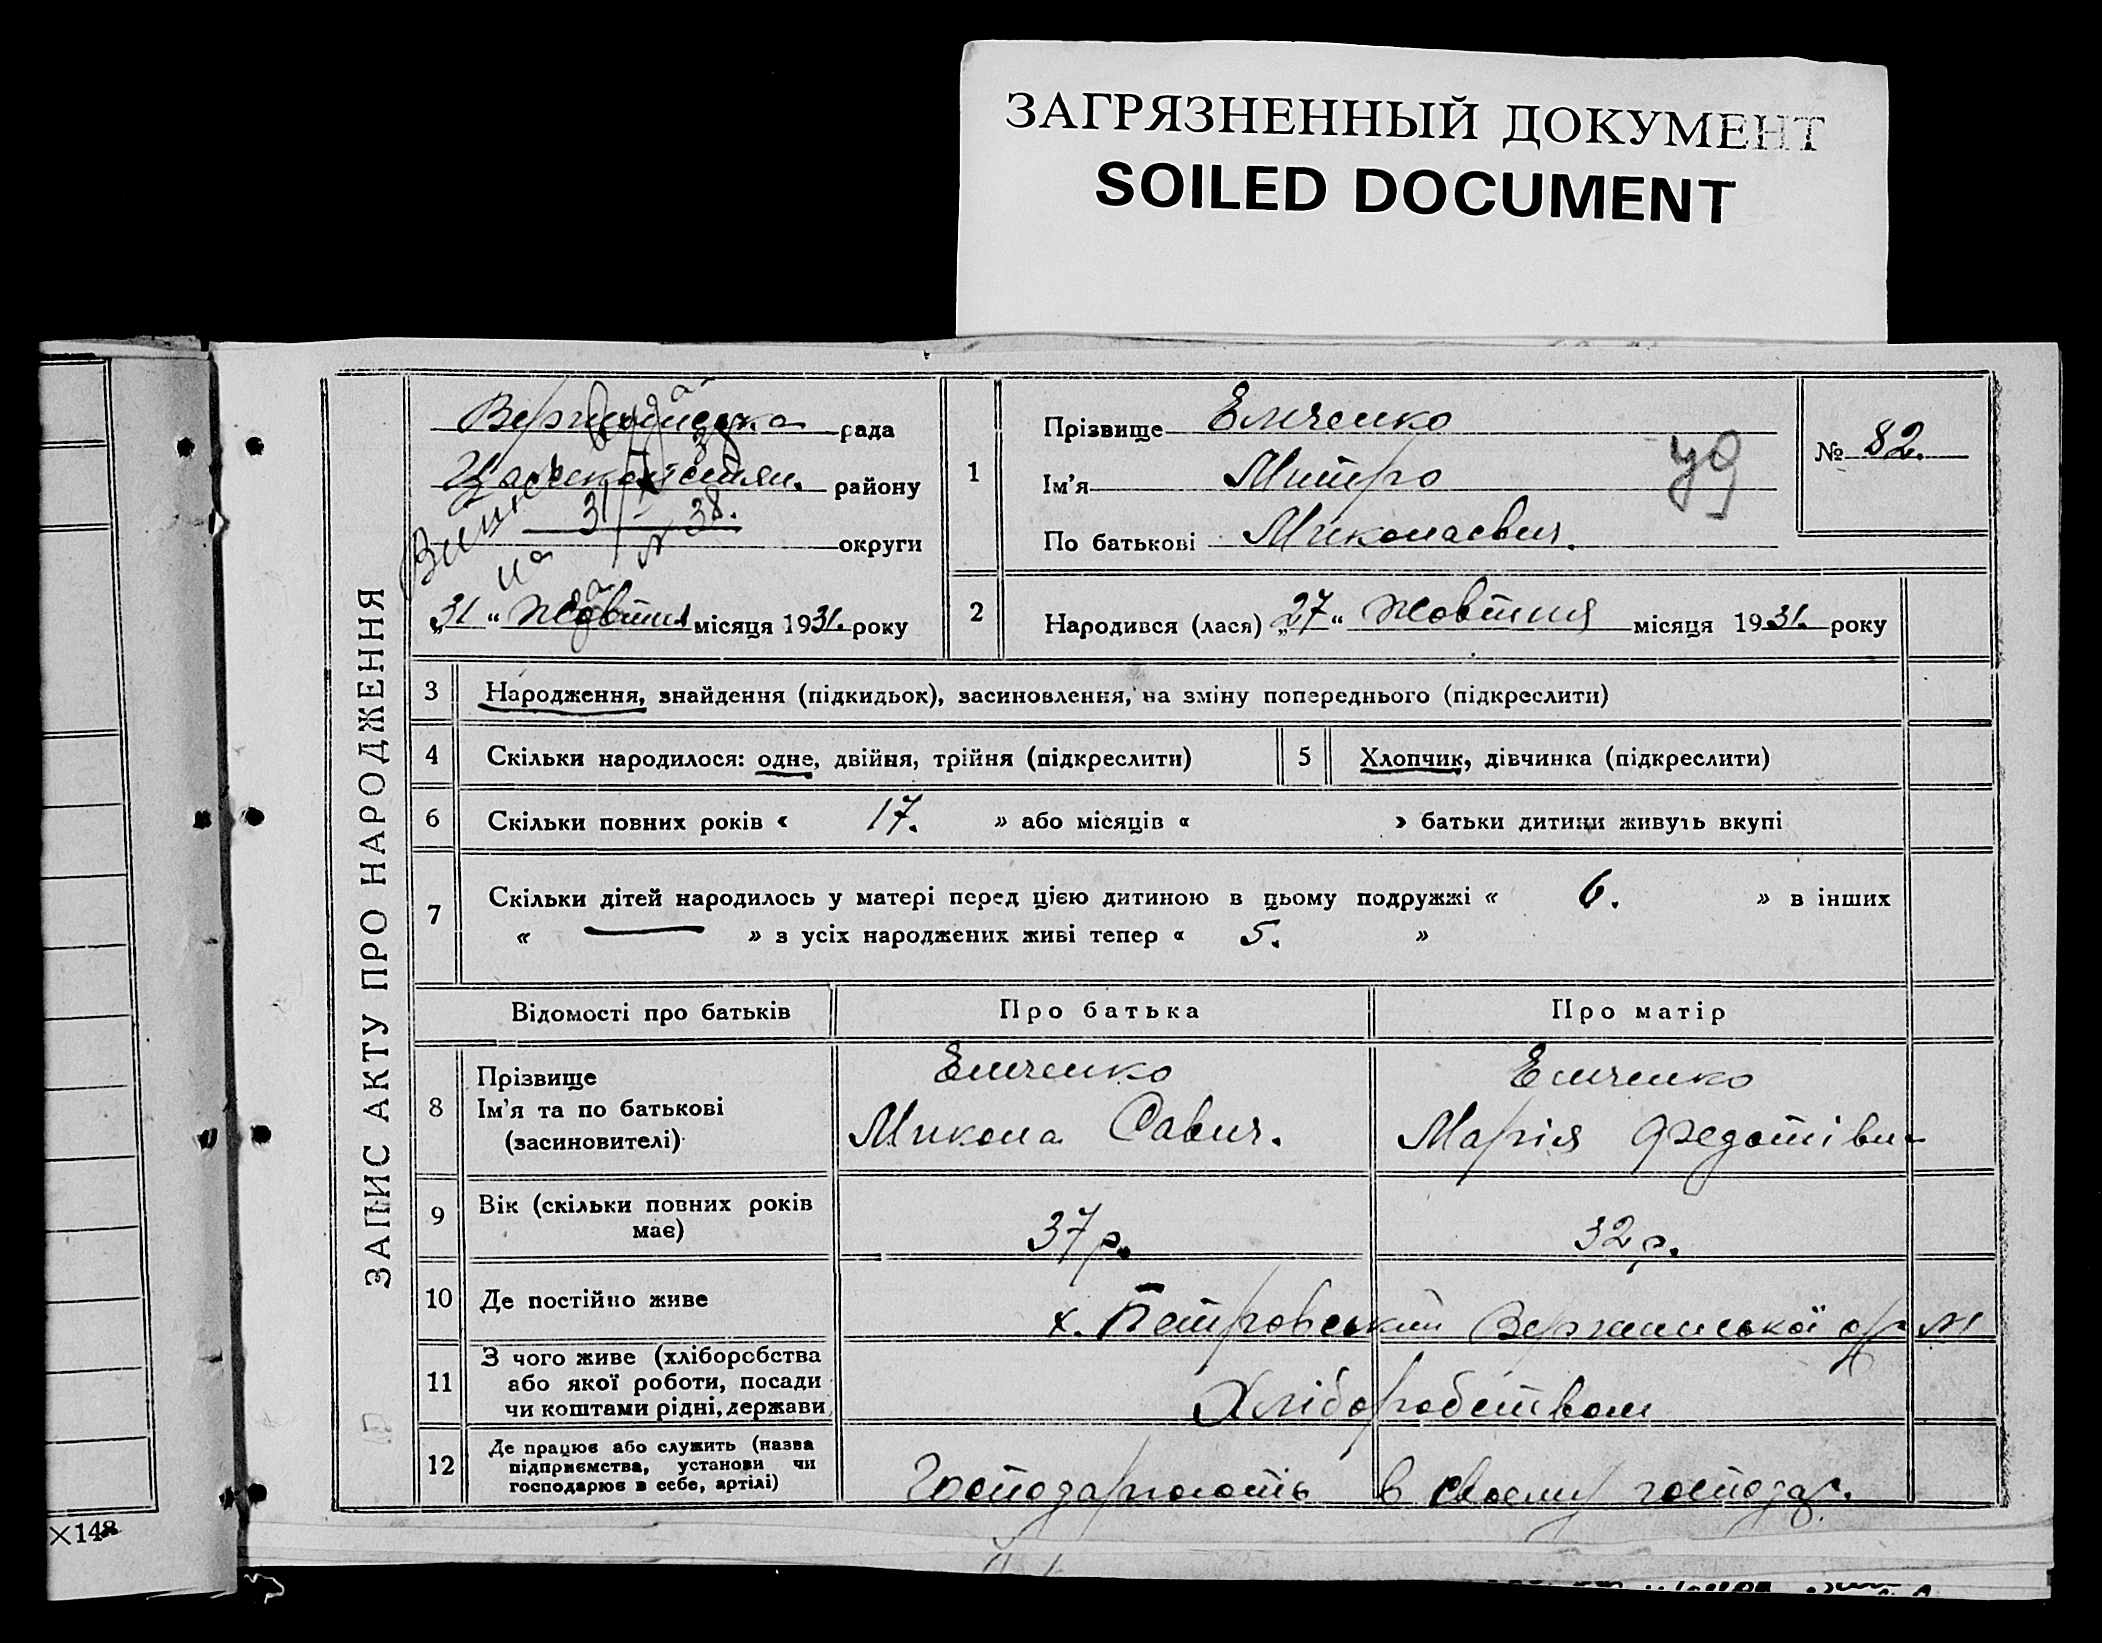 ЗАГРЯЗНЕННЫЙ ДОКУМЕНТ
SOILED DOCUMENT
ЗАПИС АКТУ ПРО НАРОДЖЕННЯ
рада
району
31/I 38.
округи
„31“ Жовтня місяця 1931. року
1
Прізвище Емченко
Ім'я Митро
По батькові Миколаєвич.
уд
№ 82.
2
Народився (лася) „27“ Жовтня місяця 1931. року
3 Народження, знайдення (підкидьок), засиновлення, на зміну попереднього (підкреслити)
4 Скільки народилося: одне, двійня, трійня (підкреслити)
5 Хлопчик, дівчинка (підкреслити)
6 Скільки повних років « 17. » або місяців « » батьки дитини живуть вкупі
7 Скільки дітей народилось у матері перед цією дитиною в цьому подружжі « 6. » в інших
« — » з усіх народжених живі тепер « 5. »
Відомості про батьків Про батька Про матір
8 Прізвище
Ім'я та по батькові
(засиновителі)
Емченко
Микола Савич.
Емченко
Марія Федотівн
9 Вік (скільки повних років
має)
37 р. 32 р.
10 Де постійно живе
х. Петровський
11 З чого живе (хліборобства
або якої роботи, посади
чи коштами рідні, держави
Хліборобством
12 Де працює або служить (назва
підприємства, установи чи
господарює в себе, артілі)
Господарюють в своєму господар.
×148